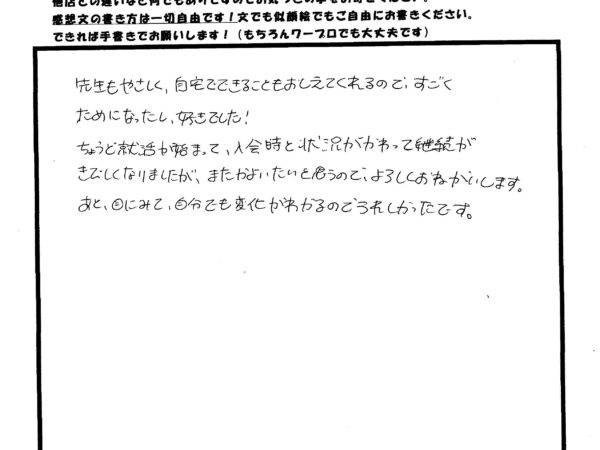 感想文の書き方は一切自由です！文でも似顔絵でもご自由にお書きください。
できれば手書きでお願いします！（もちろんワープロでも大丈夫です）
先生もやさしく、自宅でできることもおしえてくれるので、すごく
ためになったし、好きでした！
ちょうど就活が始まって、入会時と状況がかわって継続が
きびしくなりましたが、またかよいたいと思うので、よろしくおねがいします。
あと、目にみて、自分でも変化がわかるのでうれしかったです。